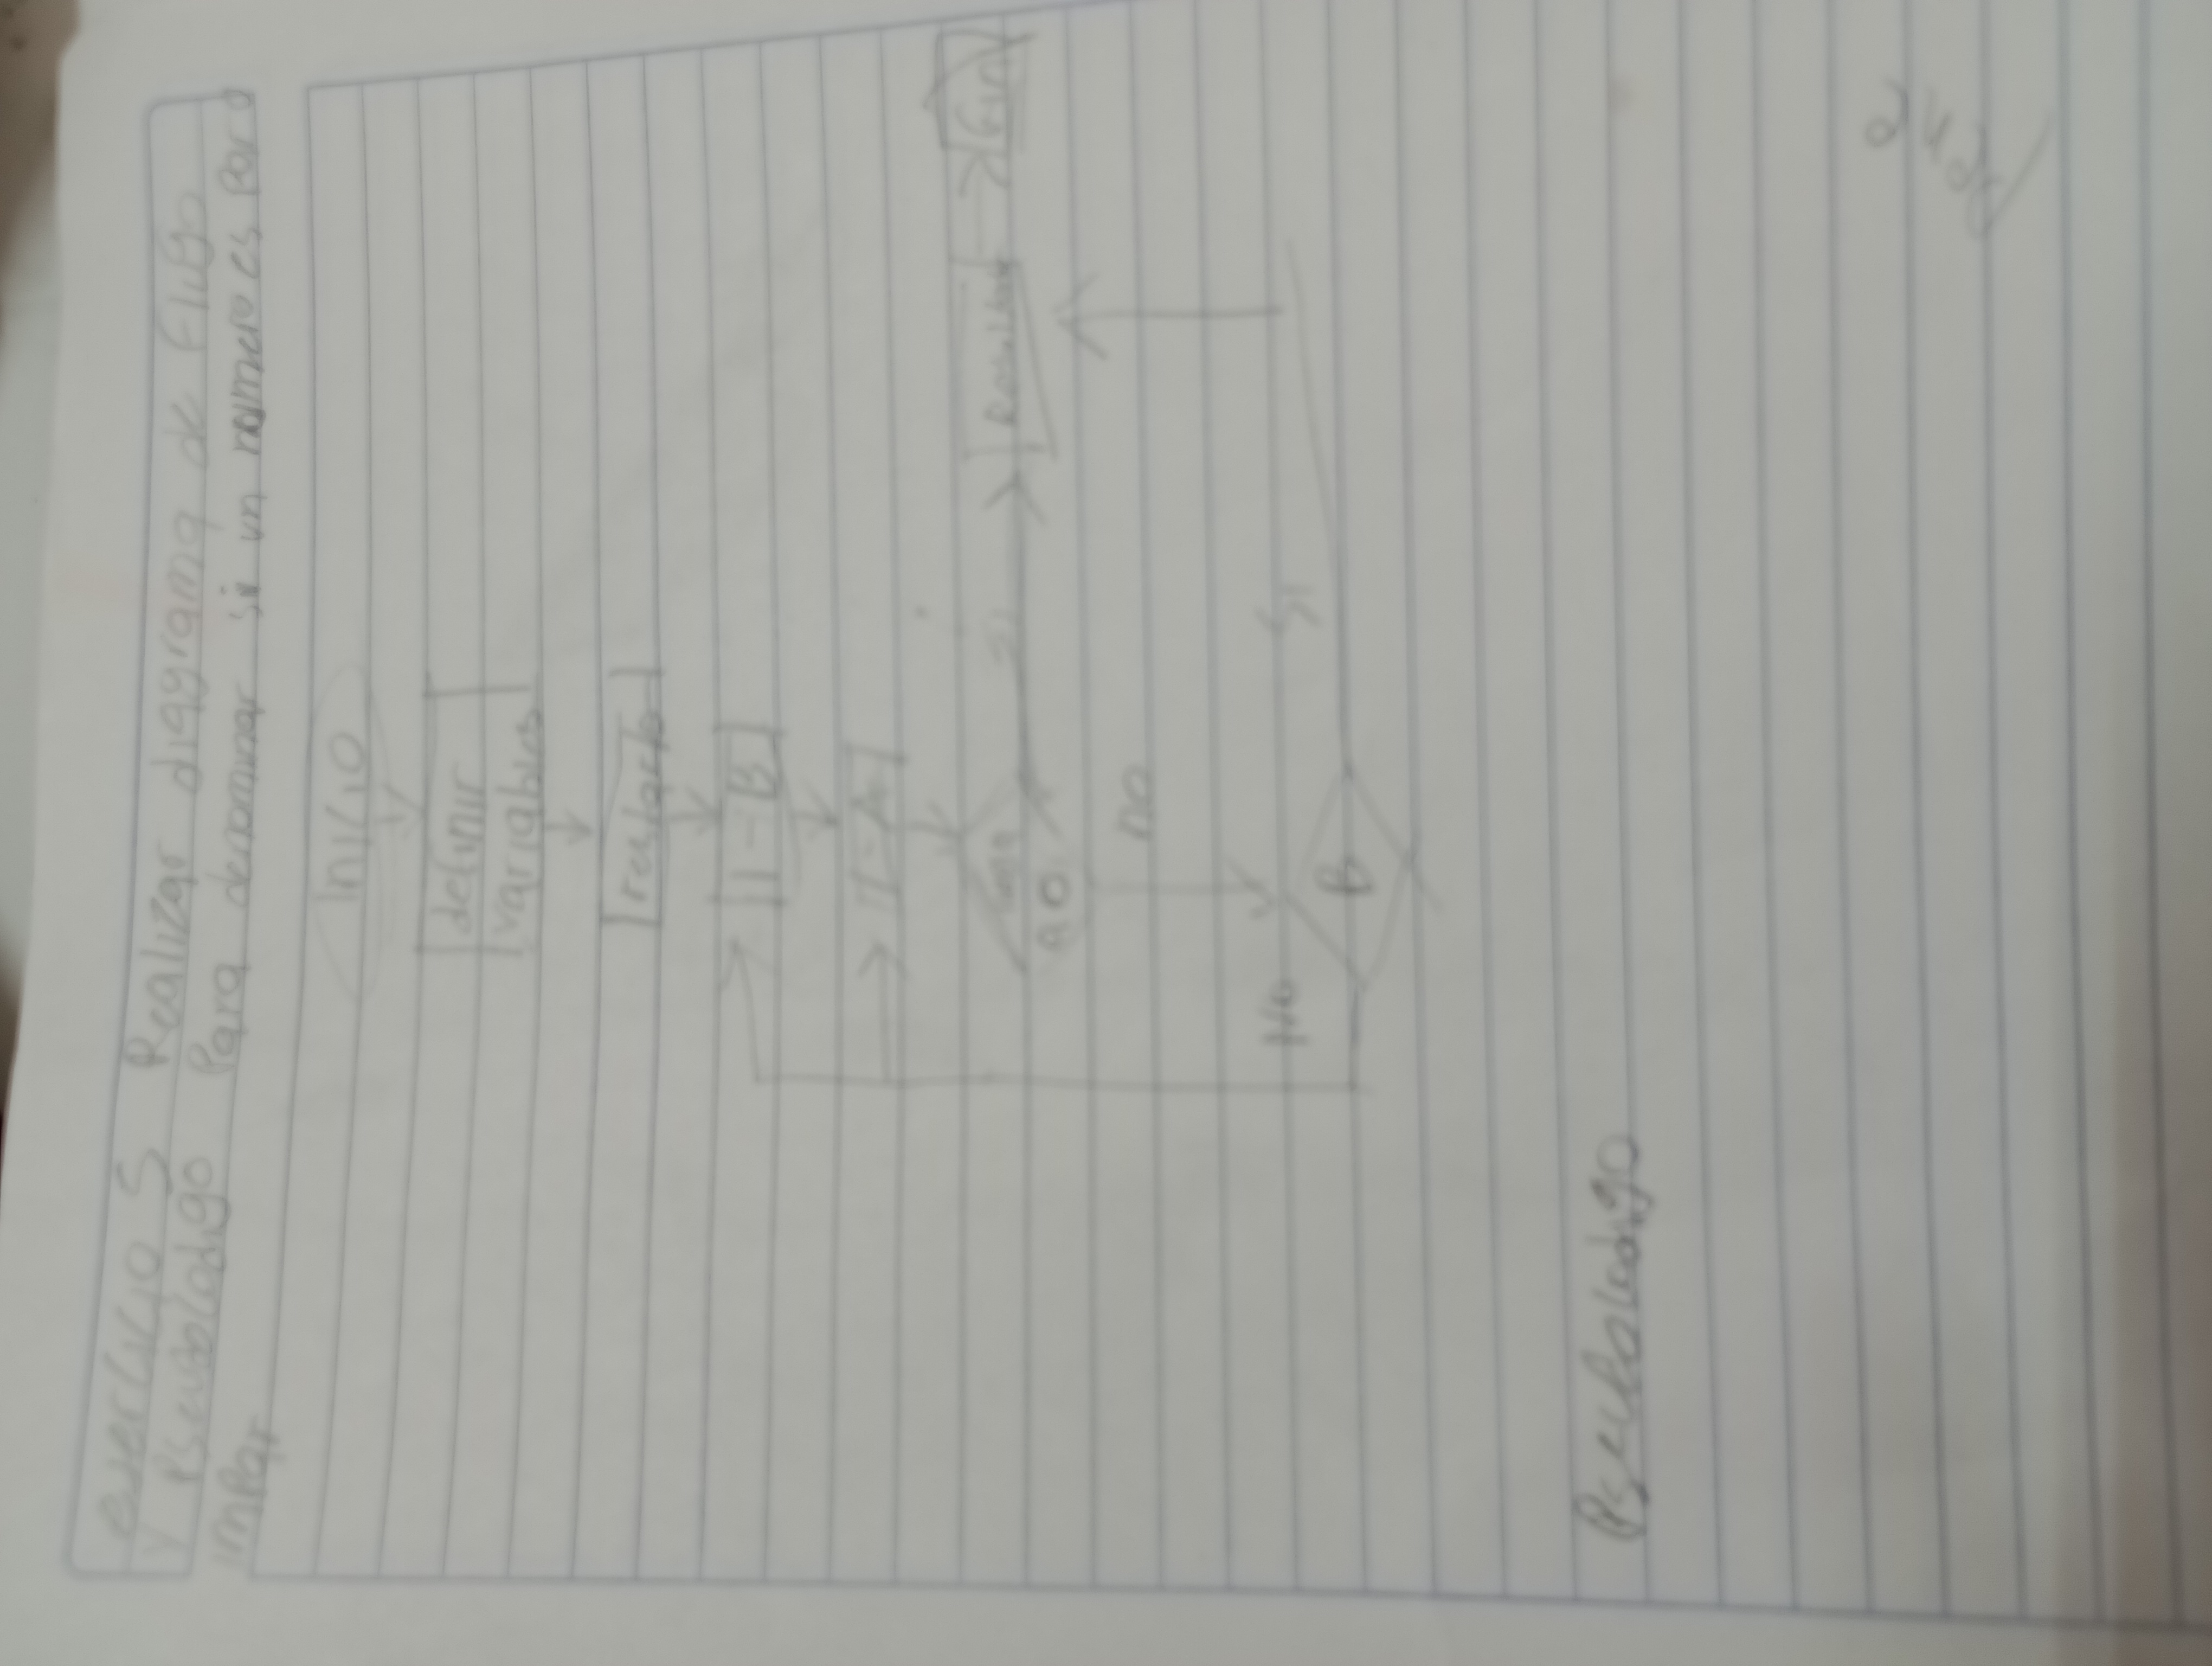 ejercicio 5 Realizar diagrama de flujo
y Pseudocodigo Para derminar si un número es Par o
impar
Inicio
definir
variables
1-B
1-A
A O
SI
Resultado
Fin
no
B
SI
No
Pseudocodigo